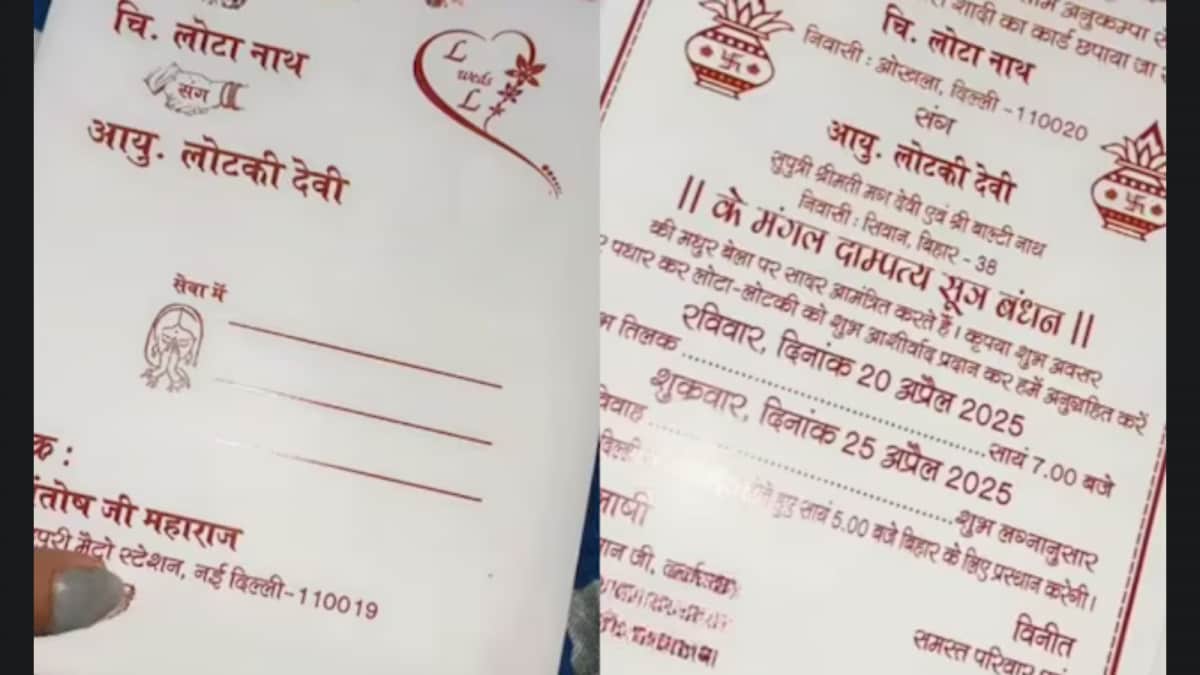 चि. लोटा नाथ
संग
आयु. लोटकी देवी
L
weds
L
सेवा में
जी महाराज
मैट्रो स्टेशन, नई दिल्ली-110019
अनुकम्पा
शादी का कार्ड छपाया जा
चि. लोटा नाथ
निवासी : ओखला, दिल्ली -110020
संग
आयु. लोटकी देवी
सुपुत्री श्रीमती मग देवी एवं श्री बाल्टी नाथ
निवासी : सिवान, बिहार - 38
|| के मंगल दाम्पत्य सूत्र बंधन ||
की मधुर बेला पर सादर आमंत्रित करते हैं। कृपया शुभ अवसर
पधार कर लोटा-लोटकी को शुभ आशीर्वाद प्रदान कर हमें अनुग्रहित करें
रविवार, दिनांक 20 अप्रैल 2025
तिलक ........................................ सायं 7.00 बजे
शुक्रवार, दिनांक 25 अप्रैल 2025
विवाह ........................................ शुभ लग्नानुसार
हुए सायं 5.00 बजे बिहार के लिए प्रस्थान करेगी।
जी,
विनीत
समस्त परिवार